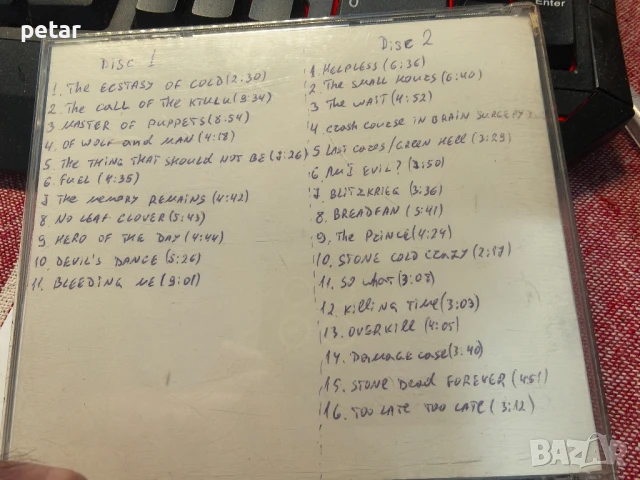 petar
Enter
Disc 1
1. The ECSTASY OF COLD (2:30)
2. The call of the KTULU (9:34)
3 MASTER OF PUPPETS (8:54)
4. OF WOLF and MAN (4:18)
5. The THING THAT SHOULD NOT BE (7:26)
6. FUEL (4:35)
7 The memory REMAINS (4:42)
8 NO LEAF CLOVER (5:43)
9 HERO OF THE DAY (4:44)
10 DEVIL'S DANCE (5:26)
11. BLEEDING ME (9:01)
Disc 2
1 HELPLESS (6:36)
2 The SMALL HOURS (6:40)
3 The WAIT (4:52)
4 crash course IN BRAIN SURGERY
5 Last cares/GREEN HELL (3:29)
6 Am I EVIL? (7:50)
7. BLITZKRIEG (3:36)
8. BREADFAN (5:41)
9. The PRINCE (4:24)
10. STONE COLD CRAZY (2:17)
11. SO WHAT (3:07)
12. Killing Time (3:03)
13. OVERKILL (4:05)
14. Damage case (3:40)
15. STONE Dead FOREVER (4:51)
16. TOO LATE TOO LATE (3:12)
BAZAR